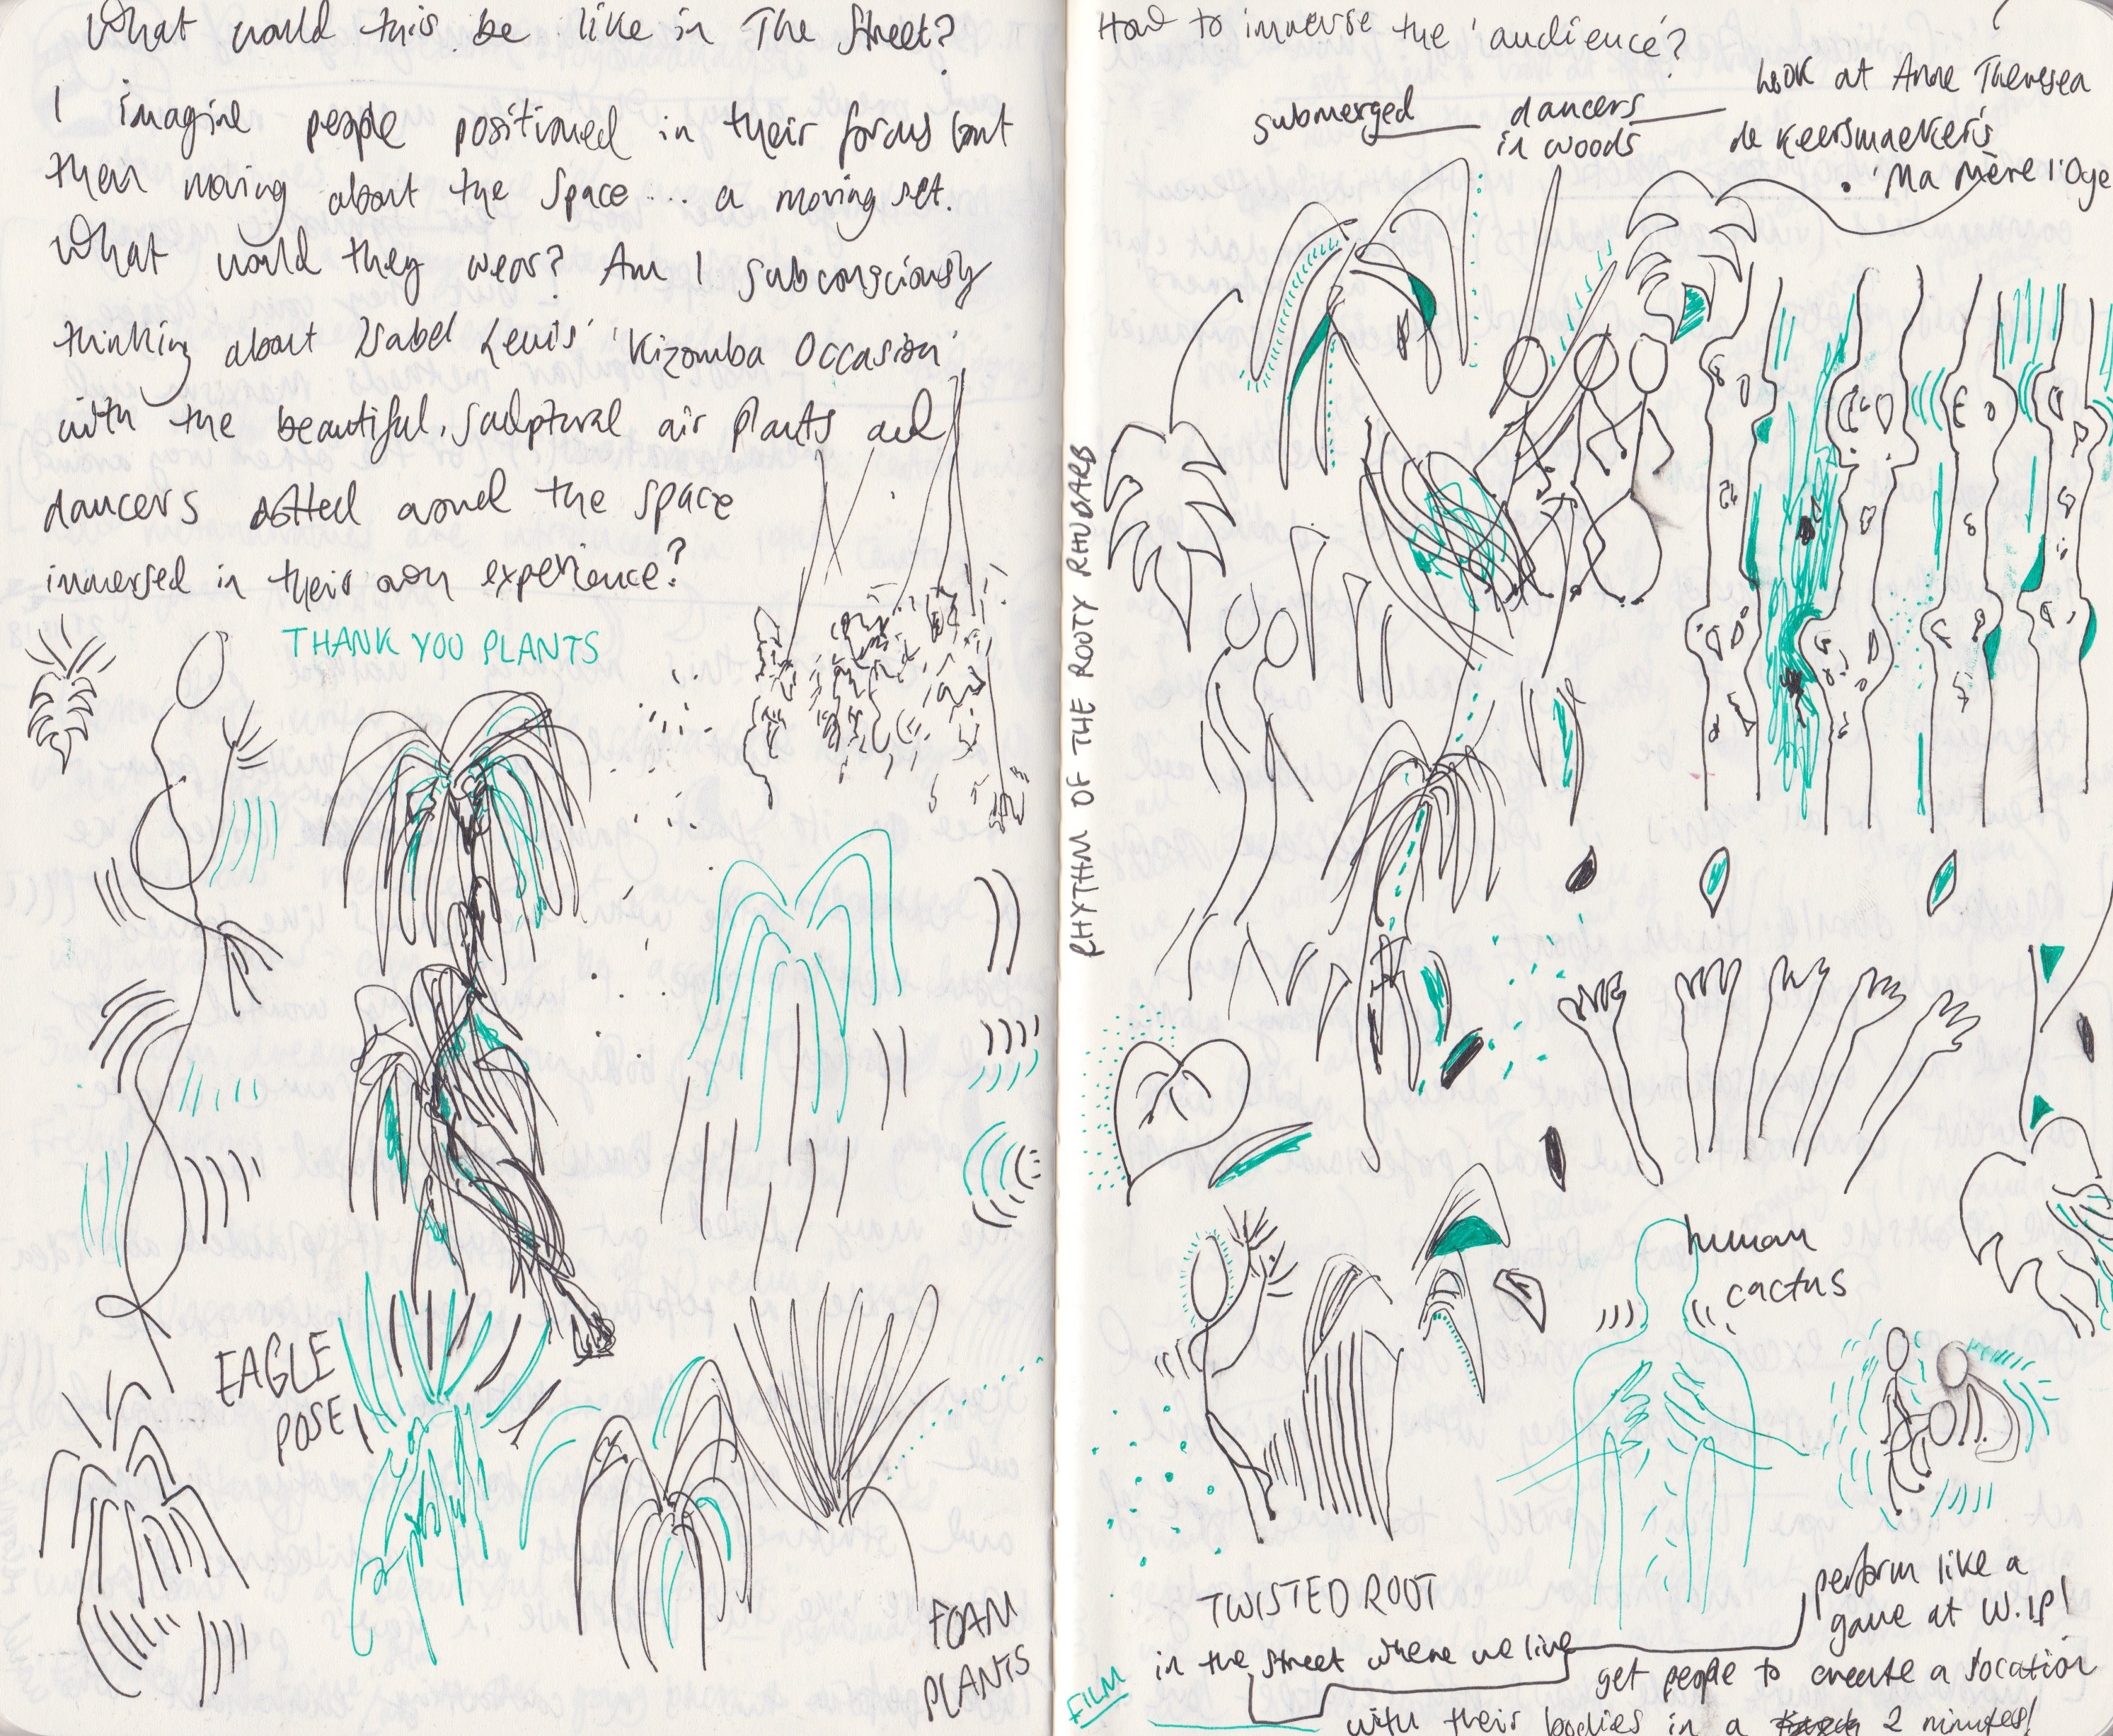 What would this be like in The Street?
I imagine people positioned in their forms but
then moving about the space... a moving set.
What would they wear? Am I subconsciously
thinking about Isabel Lewis' 'Kizomba Occasion'
with the beautiful, sculptural air plants and
dancers dotted around the space
immersed in their own experience?
THANK YOU PLANTS
EAGLE
POSE!
FOAM
PLANTS
How to immerse the 'audience'?
submerged
dancers
in woods
look at Anne Theresea
de Keersmaeker's
'Ma Mère l'Oye
RHYTHM OF THE ROOTY RHUBARB
human
cactus
TWISTED ROOT
perform like a
game at W.I.P!
in the street where we live
FILM
get people to create a location
with their bodies in a 2 minutes!